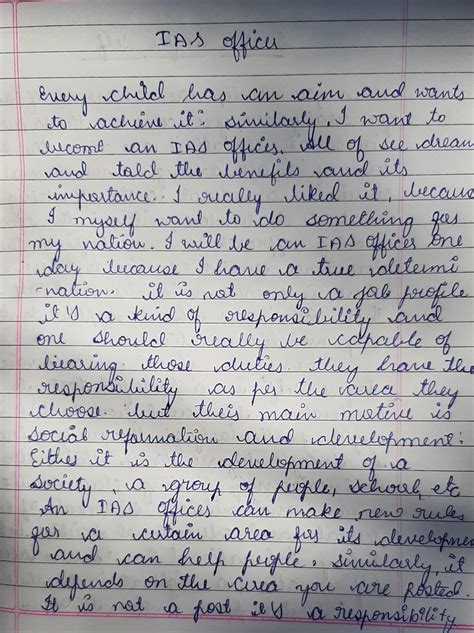 IAS officer
Every child has an aim and wants
to achieve it. similarly, I want to
become an IAS officer. All of see dream
and told the benefits and its
importance. I really liked it, because
I myself want to do something for
my nation. I will be an IAS officer one
day because I have a true determi
-nation. it is not only a job profile
it's a kind of responsibility and
one should really be capable of
bearing those duties. they have the
responsibility as per the area they
choose. but their main motive is
social reformation and development.
Either it is the development of a
society, a group of people, school, etc
An IAS officer can make new rules
for a certain area for its developmen
and can help people. similarly, it
depends on the area you are posted.
It is not a post it's a responsibility